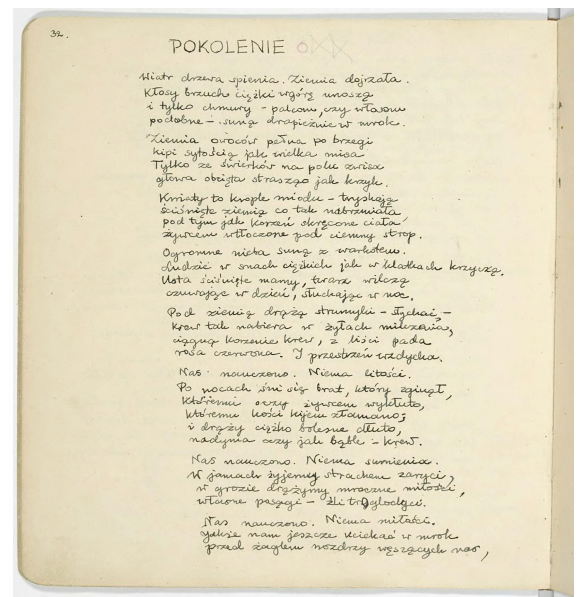 32.
POKOLENIE
Wiatr drzewa spienia. Ziemia dojrzała.
Kłosy brzuch ciężki wgórę unoszą
i tylko chmury - palcom, czy włosom
podobne - suną drapieżnie w mrok.
Ziemia owoców pełna po brzegi
kipi sytością jak wielka misa
Tylko ze świerków na polu zwisa
głowa obcięta strasząc jak krzyk.
Kwiaty to krople miodu - tryskają
ściśnięte ziemią co tak nabrzmiała
pod tym jak korzeń skręcone ciała
żywcem wtłoczone pod ciemny strop.
Ogromne nieba suną z warkotem.
Ludzie w snach ciężkich jak w klatkach krzyczą.
Usta ściśnięte mamy, twarz wilczą
czuwając w dzień, słuchając w noc.
Pod ziemią drążą strumyki - słychać -
krew tak nabiera w żyłach milczenia,
ciągną korzenie krew, z liści pada
rosa czerwona. I przestrzeń wzdycha.
Nas nauczono. Niema litości.
Po nocach śni się brat, który zginął,
któremu oczy żywcem wykłuto,
któremu kości kijem złamano;
i drąży ciężko bolesne dłuto,
nadyma oczy jak bąble - krew.
Nas nauczono. Niema sumienia.
W jamach żyjemy strachem zaryci,
w grozie drążymy mroczne miłości,
własne posągi - źli troglodyci.
Nas nauczono. Niema miłości.
Jakże nam jeszcze uciekać w mrok
przed żaglem nozdrzy węszących nas,